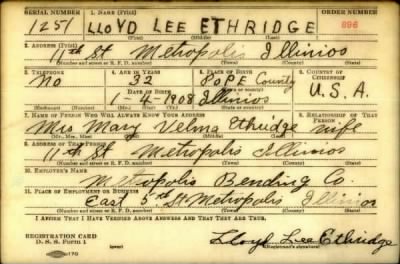 SERIAL NUMBER 1. NAME (Print) ORDER NUMBER
1251 LLOYD LEE ETHRIDGE 696
(First) (Middle) (Last)
2. ADDRESS (Print)
11th St Metropolis Illinios
(Number and street or R. F. D. number) (Town) (County) (State)
3. TELEPHONE 4. AGE IN YEARS 5. PLACE OF BIRTH 6. COUNTRY OF CITIZENSHIP
No 32 POPE County
DATE OF BIRTH (Town or county)
1-4-1908 Illinios U.S.A.
(Exchange) (Number) (Mo.) (Day) (Yr.) (State or country)
7. NAME OF PERSON WHO WILL ALWAYS KNOW YOUR ADDRESS 8. RELATIONSHIP OF THAT PERSON
Mrs Mary Velma Ethridge wife
(Mr., Mrs., Miss) (First) (Middle) (Last)
9. ADDRESS OF THAT PERSON
11th St Metropolis Illinios
(Number and street or R. F. D. number) (Town) (County) (State)
10. EMPLOYER'S NAME
Metropolis Bending Co.
11. PLACE OF EMPLOYMENT OR BUSINESS
East 5rd St Metropolis Illinios
(Number and street or R. F. D. number) (Town) (County) (State)
I AFFIRM THAT I HAVE VERIFIED ABOVE ANSWERS AND THAT THEY ARE TRUE.
REGISTRATION CARD
D. S. S. Form 1 Lloyd Lee Ethridge
(Registrant's signature)